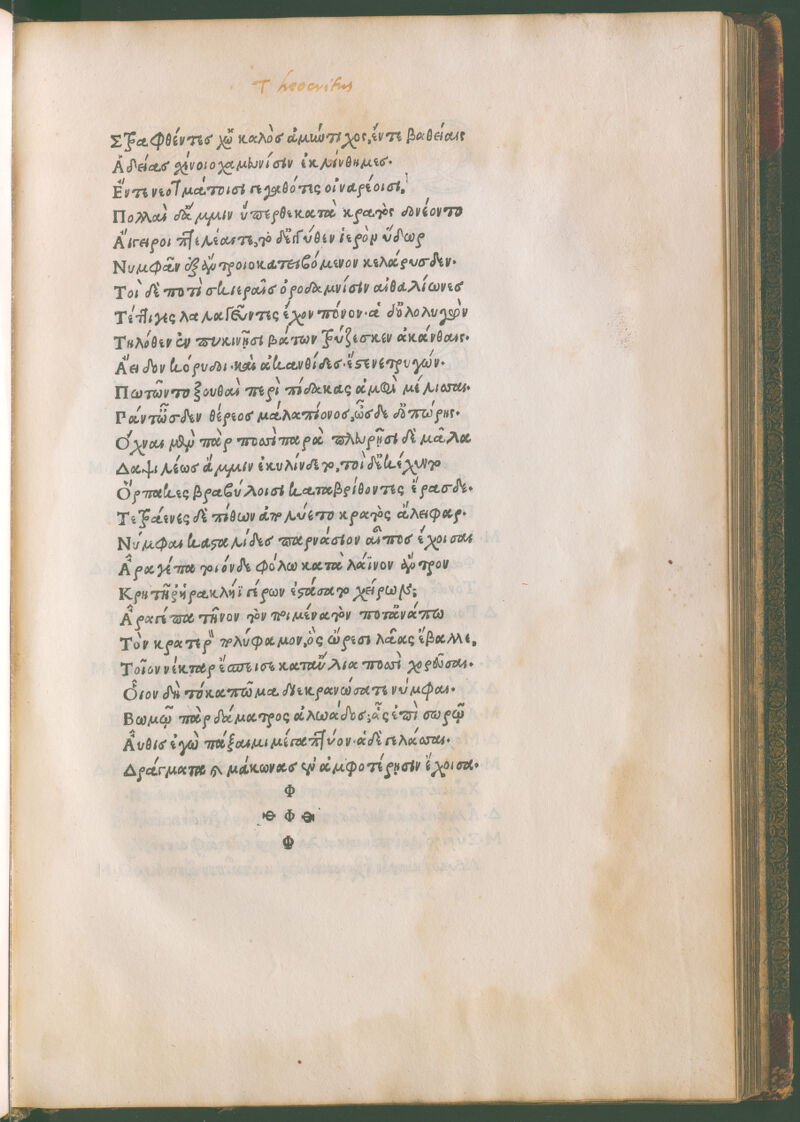 Theocritus
Στραφθέντες χὠ καλὸς ἀμύντιχος, ἔντε βαθείαις
Ἁδείας χίνοιο χαμευνίσιν ἐκλίνθημες.
Ἔντε νεοτμάτοισι γεγαθότες οἰναρέοισι,
Πολλαὶ δ' ἄμμιν ὕπερθε κατὰ κρατὸς δονέοντο
Αἴγειροι πτελέαι τε, τὸ δ' ἐγγύθεν ἱερὸν ὕδωρ
Νυμφᾶν ἐξ ἄντροιο κατειβόμενον κελάρυσδεν.
Τοὶ δὲ ποτὶ σκιεραῖς ὁροδαμνίσιν αἰθαλίωνες
Τέττιγες λαλαγεῦντες ἔχον πόνον. ἁ δ' ὀλολυγὼν
Τηλόθεν ἐν πυκινῇσι βάτων τρύζεσκεν ἀκάνθαις.
Ἄειδον κόρυδοι καὶ ἀκανθίδες. ἔστενε τρυγών.
Πωτῶντο ξουθαὶ περὶ πίδακας ἀμφὶ μέλισσαι.
Πάντ' ὦσδεν θέρεος μάλα πίονος, ὦσδε δ' ὀπώρης.
Ὄχναι μὲν πὰρ ποσσὶ παρὰ πλευρῇσι δὲ μᾶλα
Δαψιλέως ἄμμιν ἐκυλίνδετο, τοὶ δ' ἐκέχυντο
Ὄρπακες βραβύλοισι καταβρίθοντες ἔρασδε.
Τετράενες δὲ πίθων ἀπελύετο κρατὸς ἄλειφαρ.
Νύμφαι κασταλίδες παρνάσιον αἶπος ἔχοισαι
Ἆρα γέ πα τοιόνδε φόλω κατὰ λάϊνον ἄντρον
Κρητῆρ' ἡρακλῆϊ γέρων ἐστάσατο χείρων;
Ἆρα γέ πα τῆνον τὸν ποιμένα τὸν ποτ' ἀνάπω
Τὸν κρατερὸν πολύφαμον, ὃς ὤρεσι λᾶας ἔβαλλε,
Τοῖον νέκταρ ἔπεισε κατ' αὔλια ποσσὶ χορεῦσαι.
Οἷον δὴ τόκα πῶμα διεκρανώσατε νύμφαι.
Βωμῷ πὰρ δάματρος ἁλωάδος; ἇς ἐπὶ σωρῷ
Αὖθις ἐγὼ πάξαιμι μέγα πτύον. ἁ δὲ γελάσσαι.
Δράγματα καὶ μάκωνας ἐν ἀμφοτέρῃσιν ἔχοισα.
Φ
Φ Φ Φ
Φ